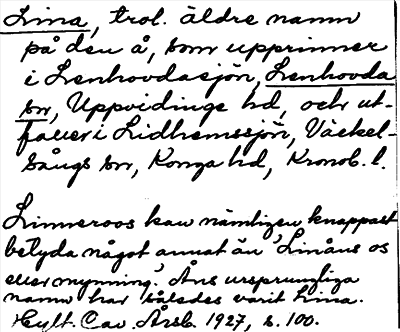 Lina, trol. äldre namn
på den å, som upprinner
i Lenhovdasjön, Lenhovda
sn, Uppvidinge hd, och ut-
faller i Lidhemssjön, Väckel-
sångs sn, Konga hd, Kronob. l.
Linneroos kan nämligen knappast
betyda något annat än 'Linåns os
eller mynning'. Åns ursprungliga
namn har således varit Lina.
Hylt. Cav. Årsb. 1927, s. 100.